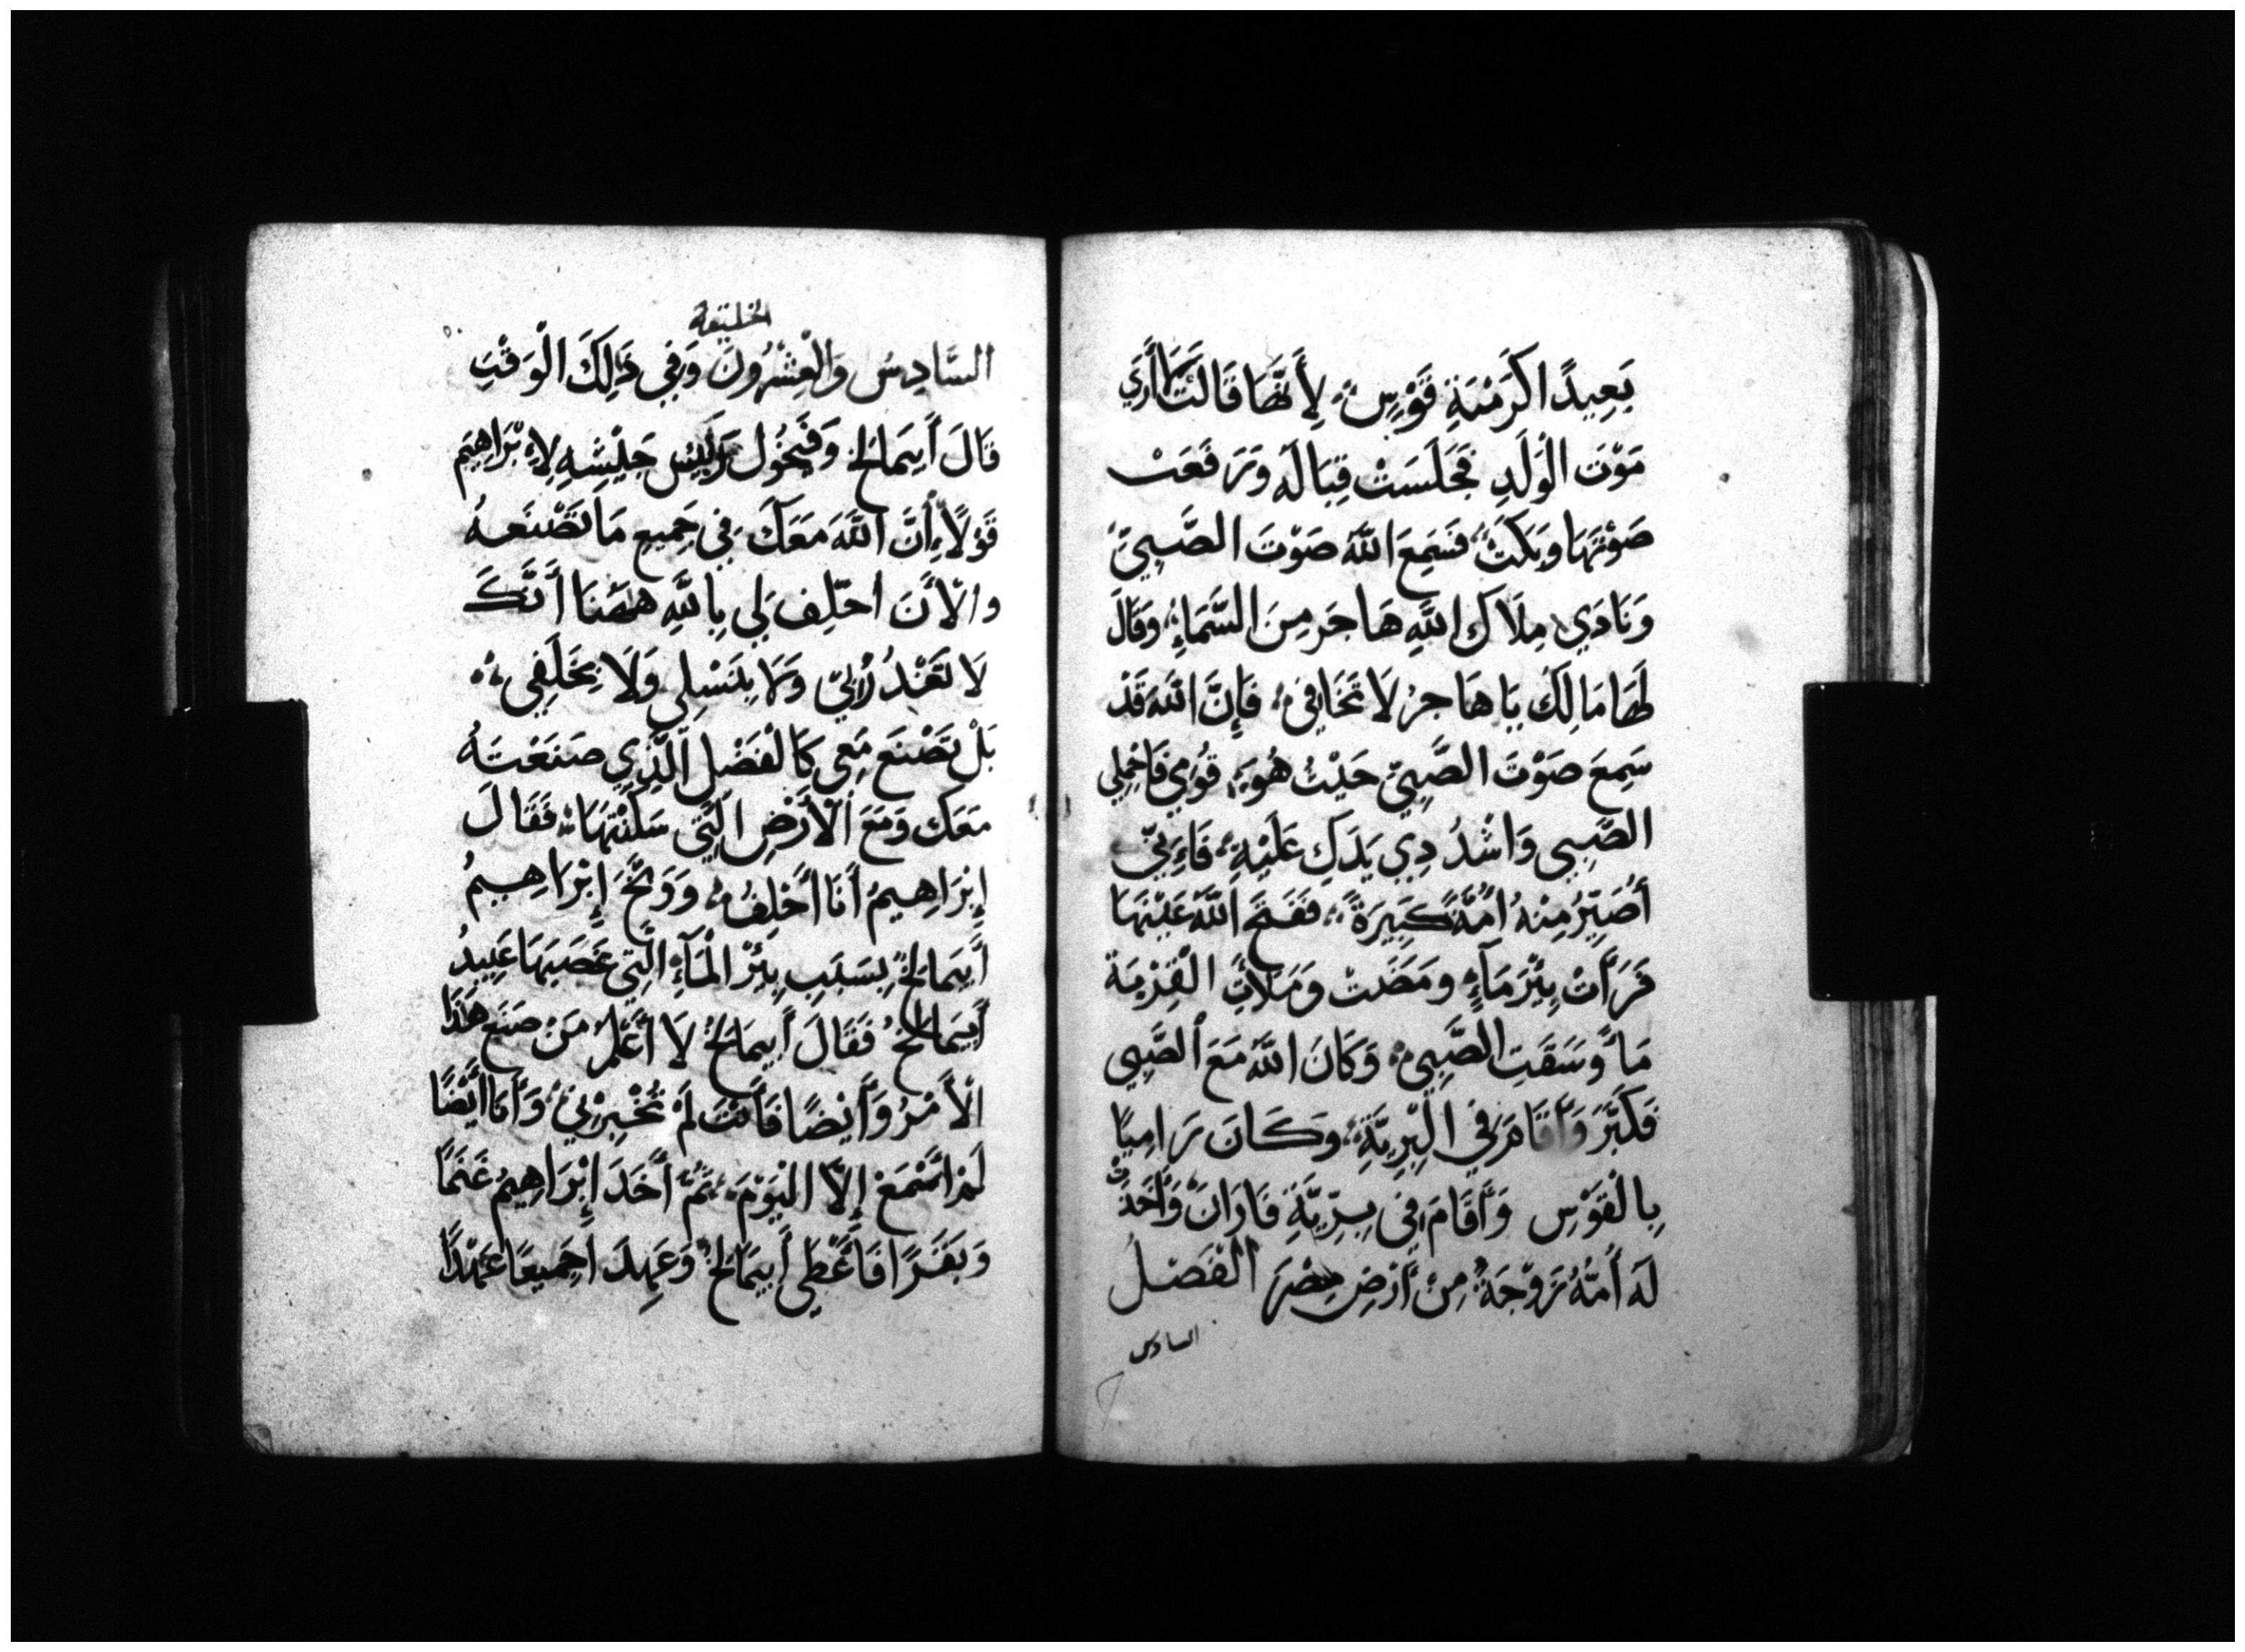 بَعِيدًا كَرَمْيَةِ قَوْسٍ لِأَنَّهَا قَالَتْ أَرَي
مَوْتَ الْوَلَدِ فَجَلَسَتْ قِبَالَه وَرَفَعَتْ
صَوْتَهَا وَبَكَتْ فَسَمِعَ اللَّهُ صَوْتَ الصَّبِيِّ
وَنَادَي مِلَاكَ اللَّهِ هَاجَر مِنَ السَّمَاءِ وَقَالَ
لَهَا مَا لِكَ يَا هَاجرُ لَا تَخَافِي فَإِنَّ اللهَ قَدْ
سَمِعَ صَوْتَ الصَّبِيِّ حَيْثُ هُوَ قُوْمِي فَاحْمِلِي
الصَّبِي وَاشْدُدِي يَدَكِ عَلَيْهِ فَاءِنِّي
أُصَيِّرُ مِنْهُ أُمَّةً كَبِيرَةً فَفَتَحَ اللَّهُ عَيْنَهَا
فَرَأَتْ بِئْرَ مَآءٍ وَمَضَتْ وَمَلَأَتِ الْقِرْبَةَ
مَاً وَسَقَتِ الصَّبِي وَكَانَ اللَّهُ مَعَ الصَّبِي
فَكَبَّرَ وَأَقَامَ فِي الْبَرِيَّةِ وَكَانَ رَامِيًا
بِالْقَوْسِ وَأَقَامَ فِي بَرِّيَّةِ فَارَانَ وَأَخَذَتْ
لَهُ أُمُّهُ زَوْجَةً مِنْ أَرْضِ مِصْرَ الْفَصْلُ
السادس
الخليقة
السَّادِسُ وَالْعِشْرُونَ وَفِي ذَلِكَ الْوَقْتِ
قَالَ أَبِيمَالِخُ وَفَيْخُول رَئِيْس جَيْشِهِ لِإِبْرَاهِيَم
قَوْلًا إِنَّ اللَّهَ مَعَكَ فِي جَمِيعِ مَا تَصْنَعهُ
والْأَنَ احْلِف لِي بِاللَّهِ هَهُنَا أَنَّكَ
لَا تَغْدُرُ بِي وَلَا بِنَسْلِي وَلَا بِخَلَفِي
بَلْ تَصْنَع مَعِي كَالْفَضْلِ الَّذِي صَنَعْتَهُ
مَعَكَ وَمَعَ الْأَرْضِ الَّتِي سَكَنْتَهَا فَقَالَ
إِبْرَاهِيمُ أَنَا أَحْلِفُ وَوَبَّخَ إِبْرَاهِيمُ
أَبِيمَالِخَ بِسَبَبِ بِئْرِ الْمَآءِ الَّتِي غَصَبَهَا عَبِيدُ
أَبِيمَالِخُ فَقَالَ أَبِيمَالِخُ لَا أَعْلَمُ مَنْ صَنَعَ هَذَا
الْأَمْرُ وَأَيْضًا فَأَنْتَ لَمْ تُخْبِرْنِي وَأَنَا أَيْضًا
لَمْ اَسْمَعْ إِلَّا الْيَوْمَ ثُمَّ أَخَدَ إِبْرَاهِيمُ غَنَمًا
وَبَقَرًا فَأَعْطَي أَبِيمَالِخُ وَعَهِدَ اجَمِيعًا عَهْدًا